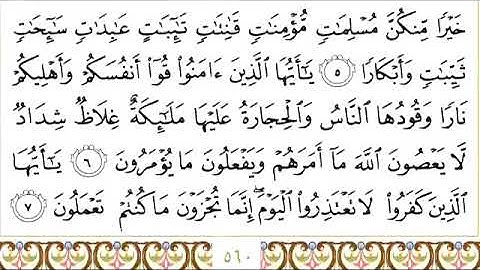 خَيْرًا مِّنكُنَّ مُسْلِمَٰتٍ مُّؤْمِنَٰتٍ قَٰنِتَٰتٍ تَٰٓئِبَٰتٍ عَٰبِدَٰتٍ سَٰٓئِحَٰتٍ
ثَيِّبَٰتٍ وَأَبْكَارًا ٥ يَٰٓأَيُّهَا ٱلَّذِينَ ءَامَنُوا۟ قُوٓا۟ أَنفُسَكُمْ وَأَهْلِيكُمْ
نَارًا وَقُودُهَا ٱلنَّاسُ وَٱلْحِجَارَةُ عَلَيْهَا مَلَٰٓئِكَةٌ غِلَاظٌ شِدَادٌ
لَّا يَعْصُونَ ٱللَّهَ مَآ أَمَرَهُمْ وَيَفْعَلُونَ مَا يُؤْمَرُونَ ٦ يَٰٓأَيُّهَا
ٱلَّذِينَ كَفَرُوا۟ لَا تَعْتَذِرُوا۟ ٱلْيَوْمَ ۖ إِنَّمَا تُجْزَوْنَ مَا كُنتُمْ تَعْمَلُونَ ٧
٥٦٠